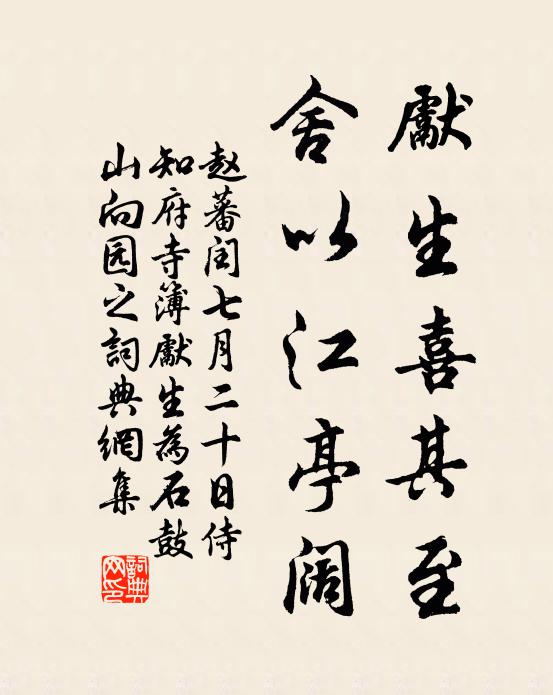 獻生喜其至
舍以江亭阔
赵蕃闰七月二十日侍
知府寺簿獻生为石鼓
山向园之詞典網集
詞典网印